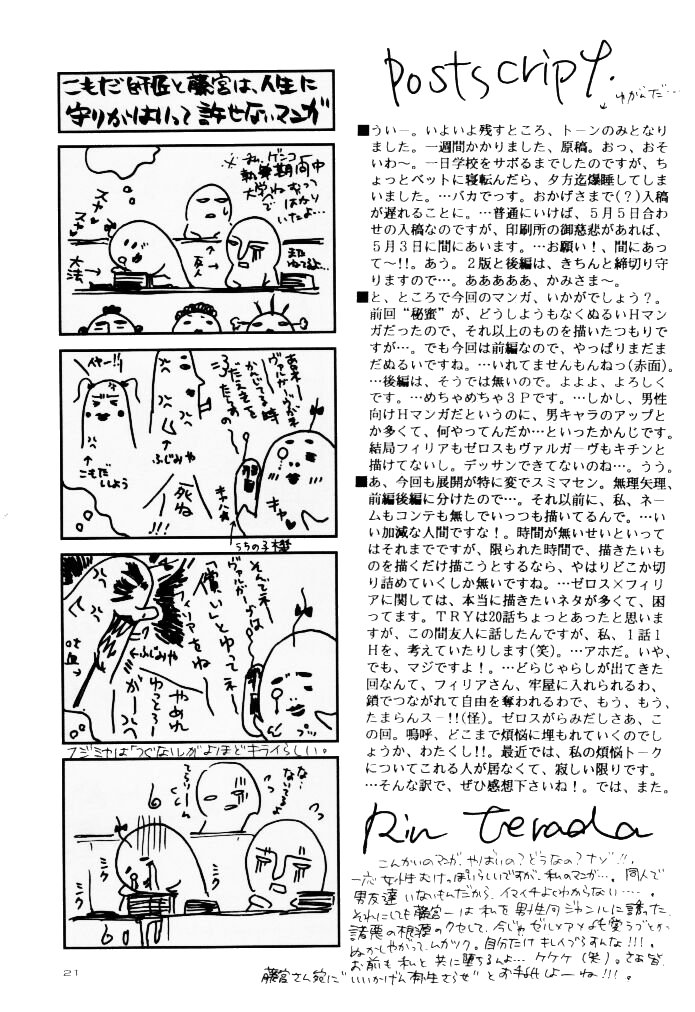 こもだ師匠と藤宮は、人生に
守りがはいって許せないマンガ
スヤ
スヤ
大法
友人
Postscript.
ゆがんだ…
■ういー。いよいよ残すところ、トーンのみとなり
ました。一週間かかりました、原稿。おっ、おそ
いわ〜。一日学校をサボるまでしたのですが、ち
ょっとベットに寝転んだら、夕方迄爆睡してしま
いました。…バカでっす。おかげさまで(?)入稿
が遅れることに。…普通にいけば、5月5日合わ
せの入稿なのですが、印刷所の御慈悲があれば、
5月3日に間にあいます。…お願い!、間にあっ
て〜!!。あう。2版と後編は、きちんと締切り守
りますので…。あああああ、かみさま〜。
■と、ところで今回のマンガ、いかがでしょう?。
前回“秘蜜”が、どうしようもなくぬるいHマン
ガだったので、それ以上のものを描いたつもりで
すが…。でも今回は前編なので、やっぱりまだま
だぬるいですね。…いれてませんもんねっ(赤面)。
…後編は、そうでは無いので。よよよ、よろしく
です。…めちゃめちゃ3Pです。…しかし、男性
向けHマンガだというのに、男キャラのアップと
か多くて、何やってんだか…といったかんじです。
結局フィリアもゼロスもヴァルガーヴもキチンと
描けてないし。デッサンできてないのね…。うう。
■あ、今回も展開が特に変でスミマセン。無理矢理、
前編後編に分けたので…。それ以前に、私、ネー
ムもコンテも無しでいっつも描いてるんで。…い
い加減な人間ですな!。時間が無いせいといって
はそれまでですが、限られた時間で、描きたいも
のを描くだけ描こうとするなら、やはりどこか切
り詰めていくしか無いですね。…ゼロス×フィリ
アに関しては、本当に描きたいネタが多くて、困
ってます。TRYは20話ちょっとあったと思いま
すが、この間友人に話したんですが、私、1話1
Hを、考えていたりします(笑)。…アホだ。いや、
でも、マジですよ!。…どらじゃらしが出てきた
回なんて、フィリアさん、牢屋に入れられるわ、
鎖でつながれて自由を奪われるわで、もう、もう、
たまらんスー!!(怪)。ゼロスがらみだしさあ、こ
の回。嗚呼、どこまで煩悩に埋もれていくのでし
ょうか、わたくし!!。最近では、私の煩悩トーク
についてこれる人が居なくて、寂しい限りです。
…そんな訳で、ぜひ感想下さいね!。では、また。
こもだ
しよう
ふじみや
死ね
!!!
キャ
うちの子機
そんでネー
ヴァルガーヴは
「償い」とゆって
フィリアをね
ふじみや
吐血
やめれ
ゆっとろー
がー
フジミヤは「つぐない」がよほどキライらしい。
ミク
ミク
Rin terada
こんかいのマンガ、やばいの?どうなの?ナゾ!!。
一応女性むけっぽいらしいですが、私のマンガ…。同人で
男友達いないもんだから、イマイチよくわからない…。
それにしても藤宮一は私を男性向ジャンルに誘った
諸悪の根源のクセして、今じゃゼル×アメも愛うづとか
ぬかしやがって、ムカツク。自分だけキレイづらすんな!!!。
お前も私と共に堕ちるんよ…ケケケ(笑)。さあ皆、
藤宮さん宛に“いいかげん再生さらせ”とお手紙しよーね!!!。
21